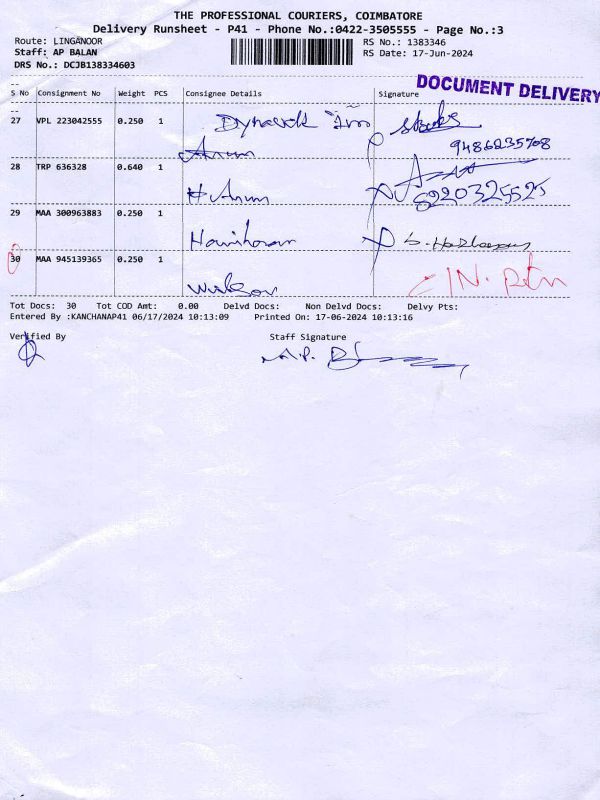 THE PROFESSIONAL COURIERS, COIMBATORE
Delivery Runsheet - P41 - Phone No.:0422-3505555 - Page No.:3
Route: LINGANOOR RS No.: 1383346
Staff: AP BALAN RS Date: 17-Jun-2024
DRS No.: DCJB138334603
DOCUMENT DELIVERY
S No Consignment No Weight PCS Consignee Details Signature
27 VPL 223042555 0.250 1
9486235708
28 TRP 636328 0.640 1
H Arum 8220325525
29 MAA 300963883 0.250 1
Hariharan
30 MAA 945139365 0.250 1
Wilson
Tot Docs: 30 Tot COD Amt: 0.00 Delvd Docs: Non Delvd Docs: Delvy Pts:
Entered By :KANCHANAP41 06/17/2024 10:13:09 Printed On: 17-06-2024 10:13:16
Verified By Staff Signature